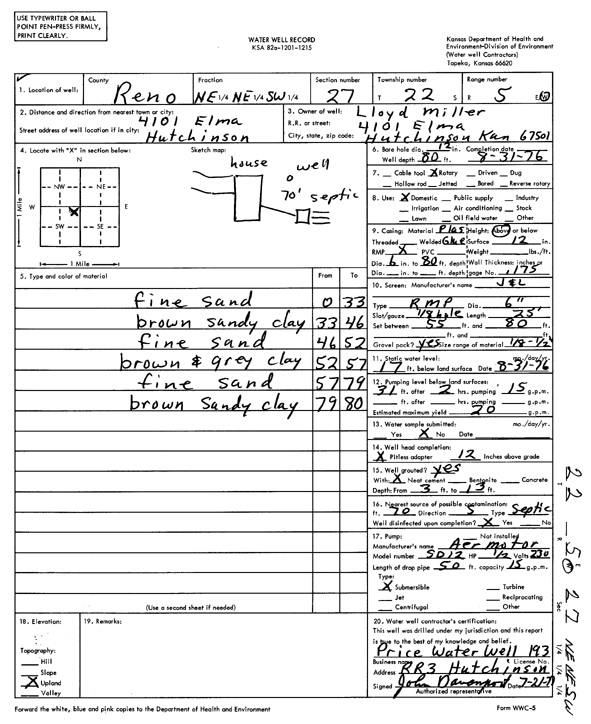 USE TYPEWRITER OR BALL
POINT PEN-PRESS FIRMLY,
PRINT CLEARLY.
WATER WELL RECORD
KSA 82a-1201-1215
Kansas Department of Health and
Environment-Division of Environment
(Water well Contractors)
Topeka, Kansas 66620
1. Location of well:
County
Reno
Fraction
NE 1/4 NE 1/4 SW 1/4
Section number
27
Township number
T 22 S
Range number
R 5 E W
2. Distance and direction from nearest town or city:
4101 Elma
Street address of well location if in city:
Hutchinson
3. Owner of well: Lloyd Miller
R.R. or street: 4101 Elma
City, state, zip code: Hutchinson Kan 67501
4. Locate with "X" in section below:
N
NW NE
W E
SW SE
X
S
1 Mile
1 Mile
Sketch map:
house
well
70' septic
6. Bore hole dia. 12 in. Completion date
Well depth 80 ft. 8-31-76
7. Cable tool X Rotary Driven Dug
Hollow rod Jetted Bored Reverse rotary
8. Use: X Domestic Public supply Industry
Irrigation Air conditioning Stock
Lawn Oil field water Other
9. Casing: Material Plas Height: Above or below
Threaded Welded Glue Surface 12 in.
RMP X PVC Weight lbs./ft.
Dia. 6 in. to 80 ft. depth Wall Thickness: inches or
Dia. in. to ft. depth gage No. .175
5. Type and color of material
From To
fine sand 0 33
brown sandy clay 33 46
fine sand 46 52
brown & grey clay 52 57
fine sand 57 79
brown sandy clay 79 80
(Use a second sheet if needed)
10. Screen: Manufacturer's name J&L
Type RMP Dia. 6"
Slot/gauze 1/8 hole Length 25'
Set between 55 ft. and 80 ft.
ft. and ft.
Gravel pack? yes Size range of material 1/8-1/2
11. Static water level: mo./day/yr.
17 ft. below land surface Date 8-31-76
12. Pumping level below land surfaces:
31 ft. after 2 hrs. pumping 15 g.p.m.
ft. after hrs. pumping g.p.m.
Estimated maximum yield 20 g.p.m.
13. Water sample submitted: mo./day/yr.
Yes X No Date
14. Well head completion:
X Pitless adapter 12 Inches above grade
15. Well grouted? yes
With: X Neat cement Bentonite Concrete
Depth: From 3 ft. to 13 ft.
16. Nearest source of possible contamination:
ft. 70 Direction S Type Septic
Well disinfected upon completion? X Yes No
17. Pump: Not installed
Manufacturer's name Aermotor
Model number SD12 HP 1/2 Volts 230
Length of drop pipe 50 ft. capacity 15 g.p.m.
Type:
X Submersible Turbine
Jet Reciprocating
Centrifugal Other
18. Elevation:
Topography:
Hill
Slope
X Upland
Valley
19. Remarks:
20. Water well contractor's certification:
This well was drilled under my jurisdiction and this report
is true to the best of my knowledge and belief.
Price Water Well 193
Business name License No.
Address RR3 Hutchinson
Signed John Davenport Date
Authorized representative
Forward the white, blue and pink copies to the Department of Health and Environment
Form WWC-5
T 22 R 5 E W Sec 27 NE NE SW
1/4 1/4 1/4